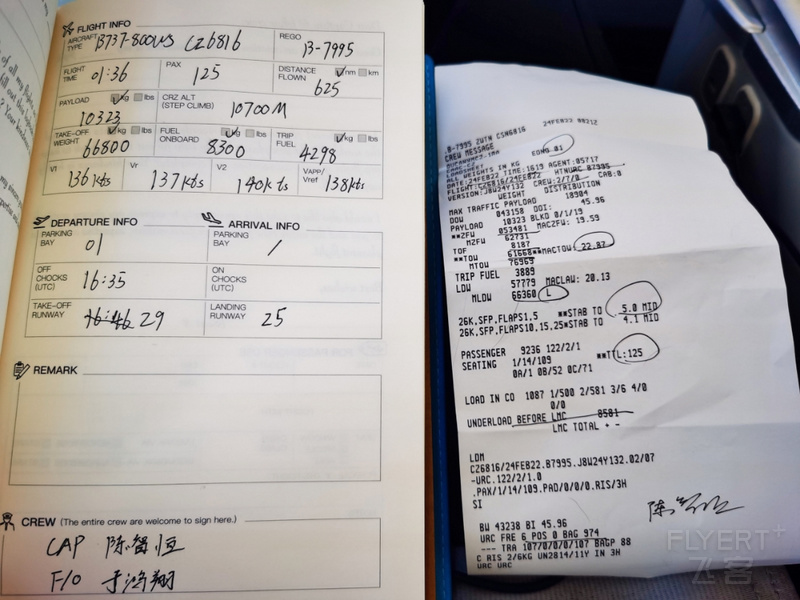 FLIGHT INFO
AIRCRAFT TYPE B737-800WS CZ6816 REGO B-7995
FLIGHT TIME 01:36 PAX 125 DISTANCE FLOWN nm km 625
PAYLOAD kg lbs 10323 CRZ ALT (STEP CLIMB) 10700M
TAKE-OFF WEIGHT kg lbs 66800 FUEL ONBOARD kg lbs 8300 TRIP FUEL kg lbs 4298
V1 136kts Vr 137kts V2 140kts VAPP/Vref 138kts
DEPARTURE INFO ARRIVAL INFO
PARKING BAY 01 PARKING BAY /
OFF CHOCKS (UTC) 16:35 ON CHOCKS (UTC)
TAKE-OFF RUNWAY 16:46 29 LANDING RUNWAY 25
REMARK
CREW (The entire crew are welcome to sign here.)
CAP 陈智恒
F/O 于鸿翔
.B-7995 ZUTN CSN6816 24FEB22 0821Z
CREW MESSAGE
LOADSHEET EDNO 01
ALL WEIGHTS IN KG
DATE:24FEB22 TIME:1619 AGENT:05717
FLIGHT:CZ6816/24FEB22 HTNURC B7995
VERSION:J8W24Y132 CREW:2/7/0 CAB:0
WEIGHT DISTRIBUTION
MAX TRAFFIC PAYLOAD 18904
DOW 043158 DOI: 45.96
PAYLOAD 10323 BLKD 0/1/19
**ZFW 053481 MACZFW: 19.59
MZFW 62731
TOF 8187
**TOW 61668**MACTOW: 22.87
MTOW 76969
TRIP FUEL 3889
LDW 57779 MACLAW: 20.13
MLDW 66360 L
26K,SFP,FLAPS1,5 **STAB TO 5.0 MID
26K,SFP,FLAPS10,15,25**STAB TO 4.1 MID
PASSENGER 9236 122/2/1 **TTL:125
SEATING 1/14/109
0A/1 0B/52 0C/71
LOAD IN CO 1087 1/500 2/581 3/6 4/0
0/0
UNDERLOAD BEFORE LMC 8581
LMC TOTAL + -
LDM
CZ6816/24FEB22.B7995.J8W24Y132.02/07
-URC.122/2/1.0
.PAX/1/14/109.PAD/0/0/0.RIS/3H
SI
BW 43238 BI 45.96
URC FRE 6 POS 0 BAG 974
--- TRA 107/0/0/0/107 BAGP 88
C RIS 2/6KG UN2814/11Y IN 3H
URC URC
FLYERT+
飞客